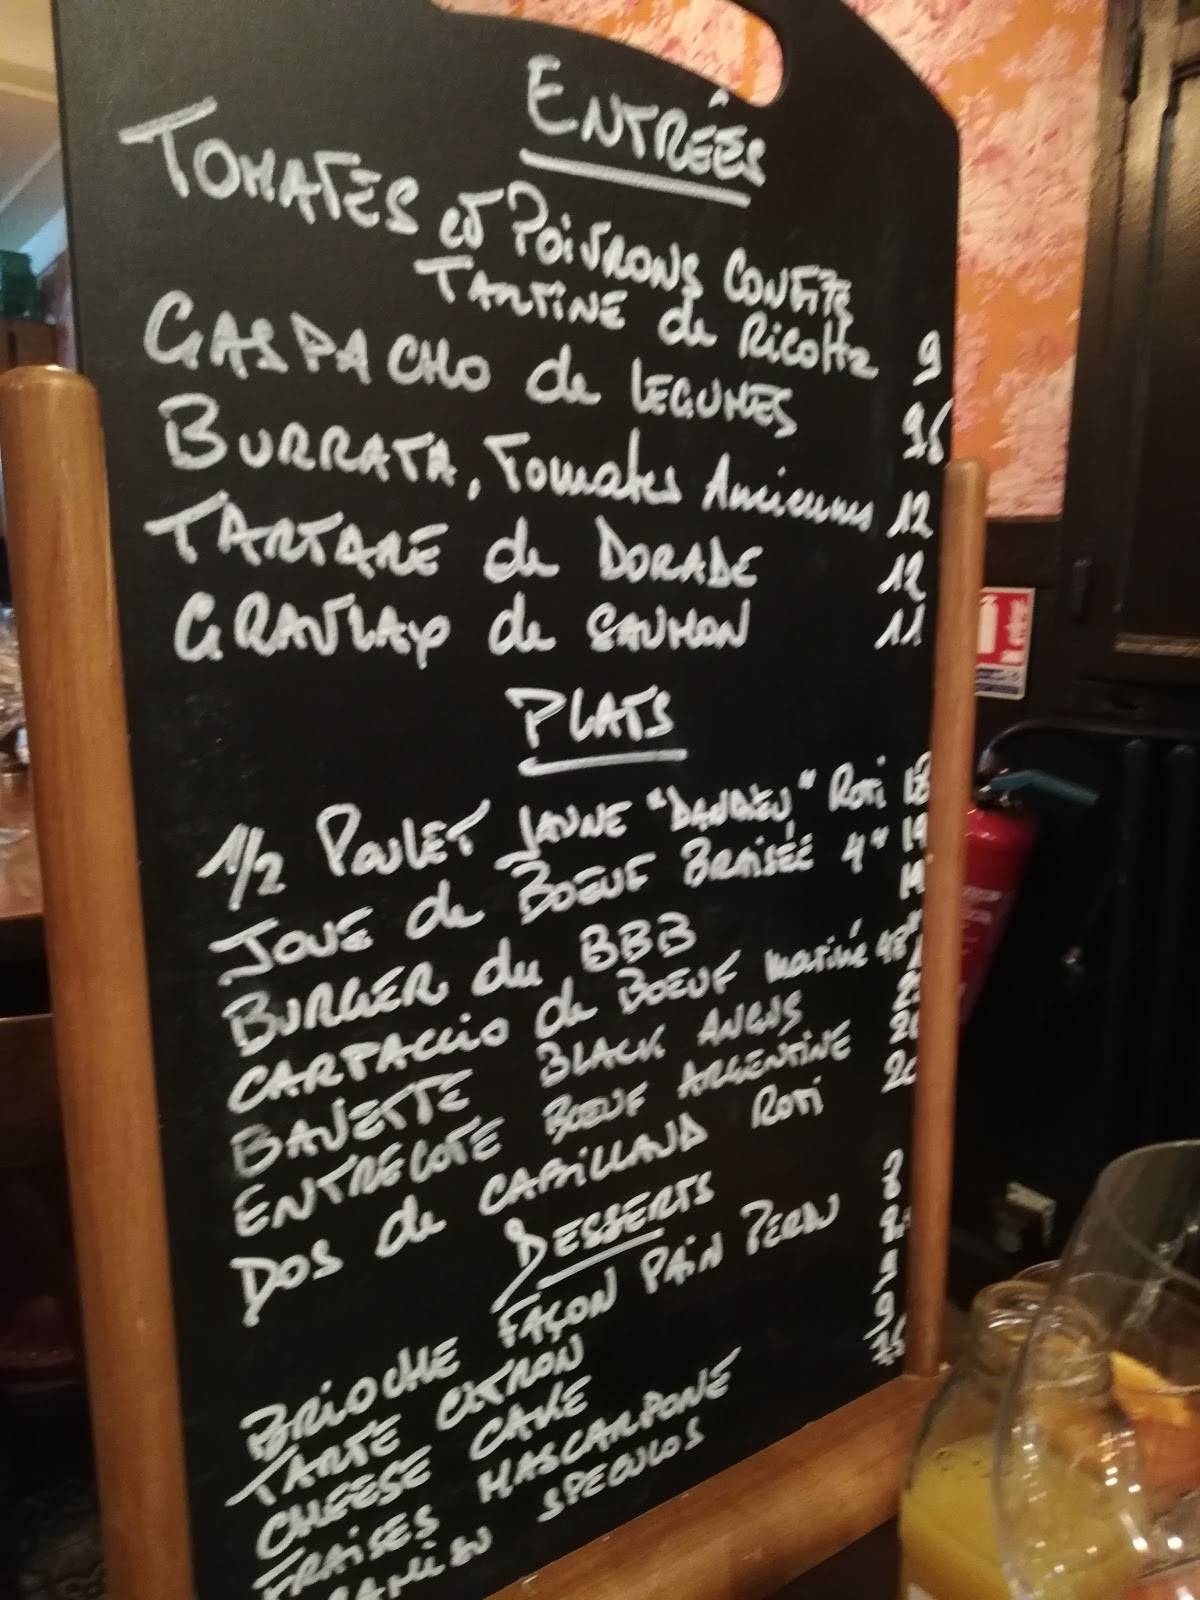 ENTRÉES
TOMATES et POIVRONS CONFITS
TARTINE de RICOTTA 9
GASPACHO de LEGUMES 95
BURRATA, Tomates Anciennes 12
TARTARE de DORADE 12
GRAVLAX de SAUMON 11
PLATS
1/2 POULET JAUNE " " Roti 18
JOUE de BOEUF BRAISÉE 4H 19
BURGER du BBB
CARPACCIO de BOEUF mariné 48H
BAVETTE BLACK ANGUS
ENTRECOTE BOEUF ARGENTINE
DOS de CABILLAUD ROTI
DESSERTS
BRIOCHE FAÇON PAIN PERDU 8
TARTE CITRON
CHEESE CAKE
FRAISES MASCARPONE 9
SPECULOS